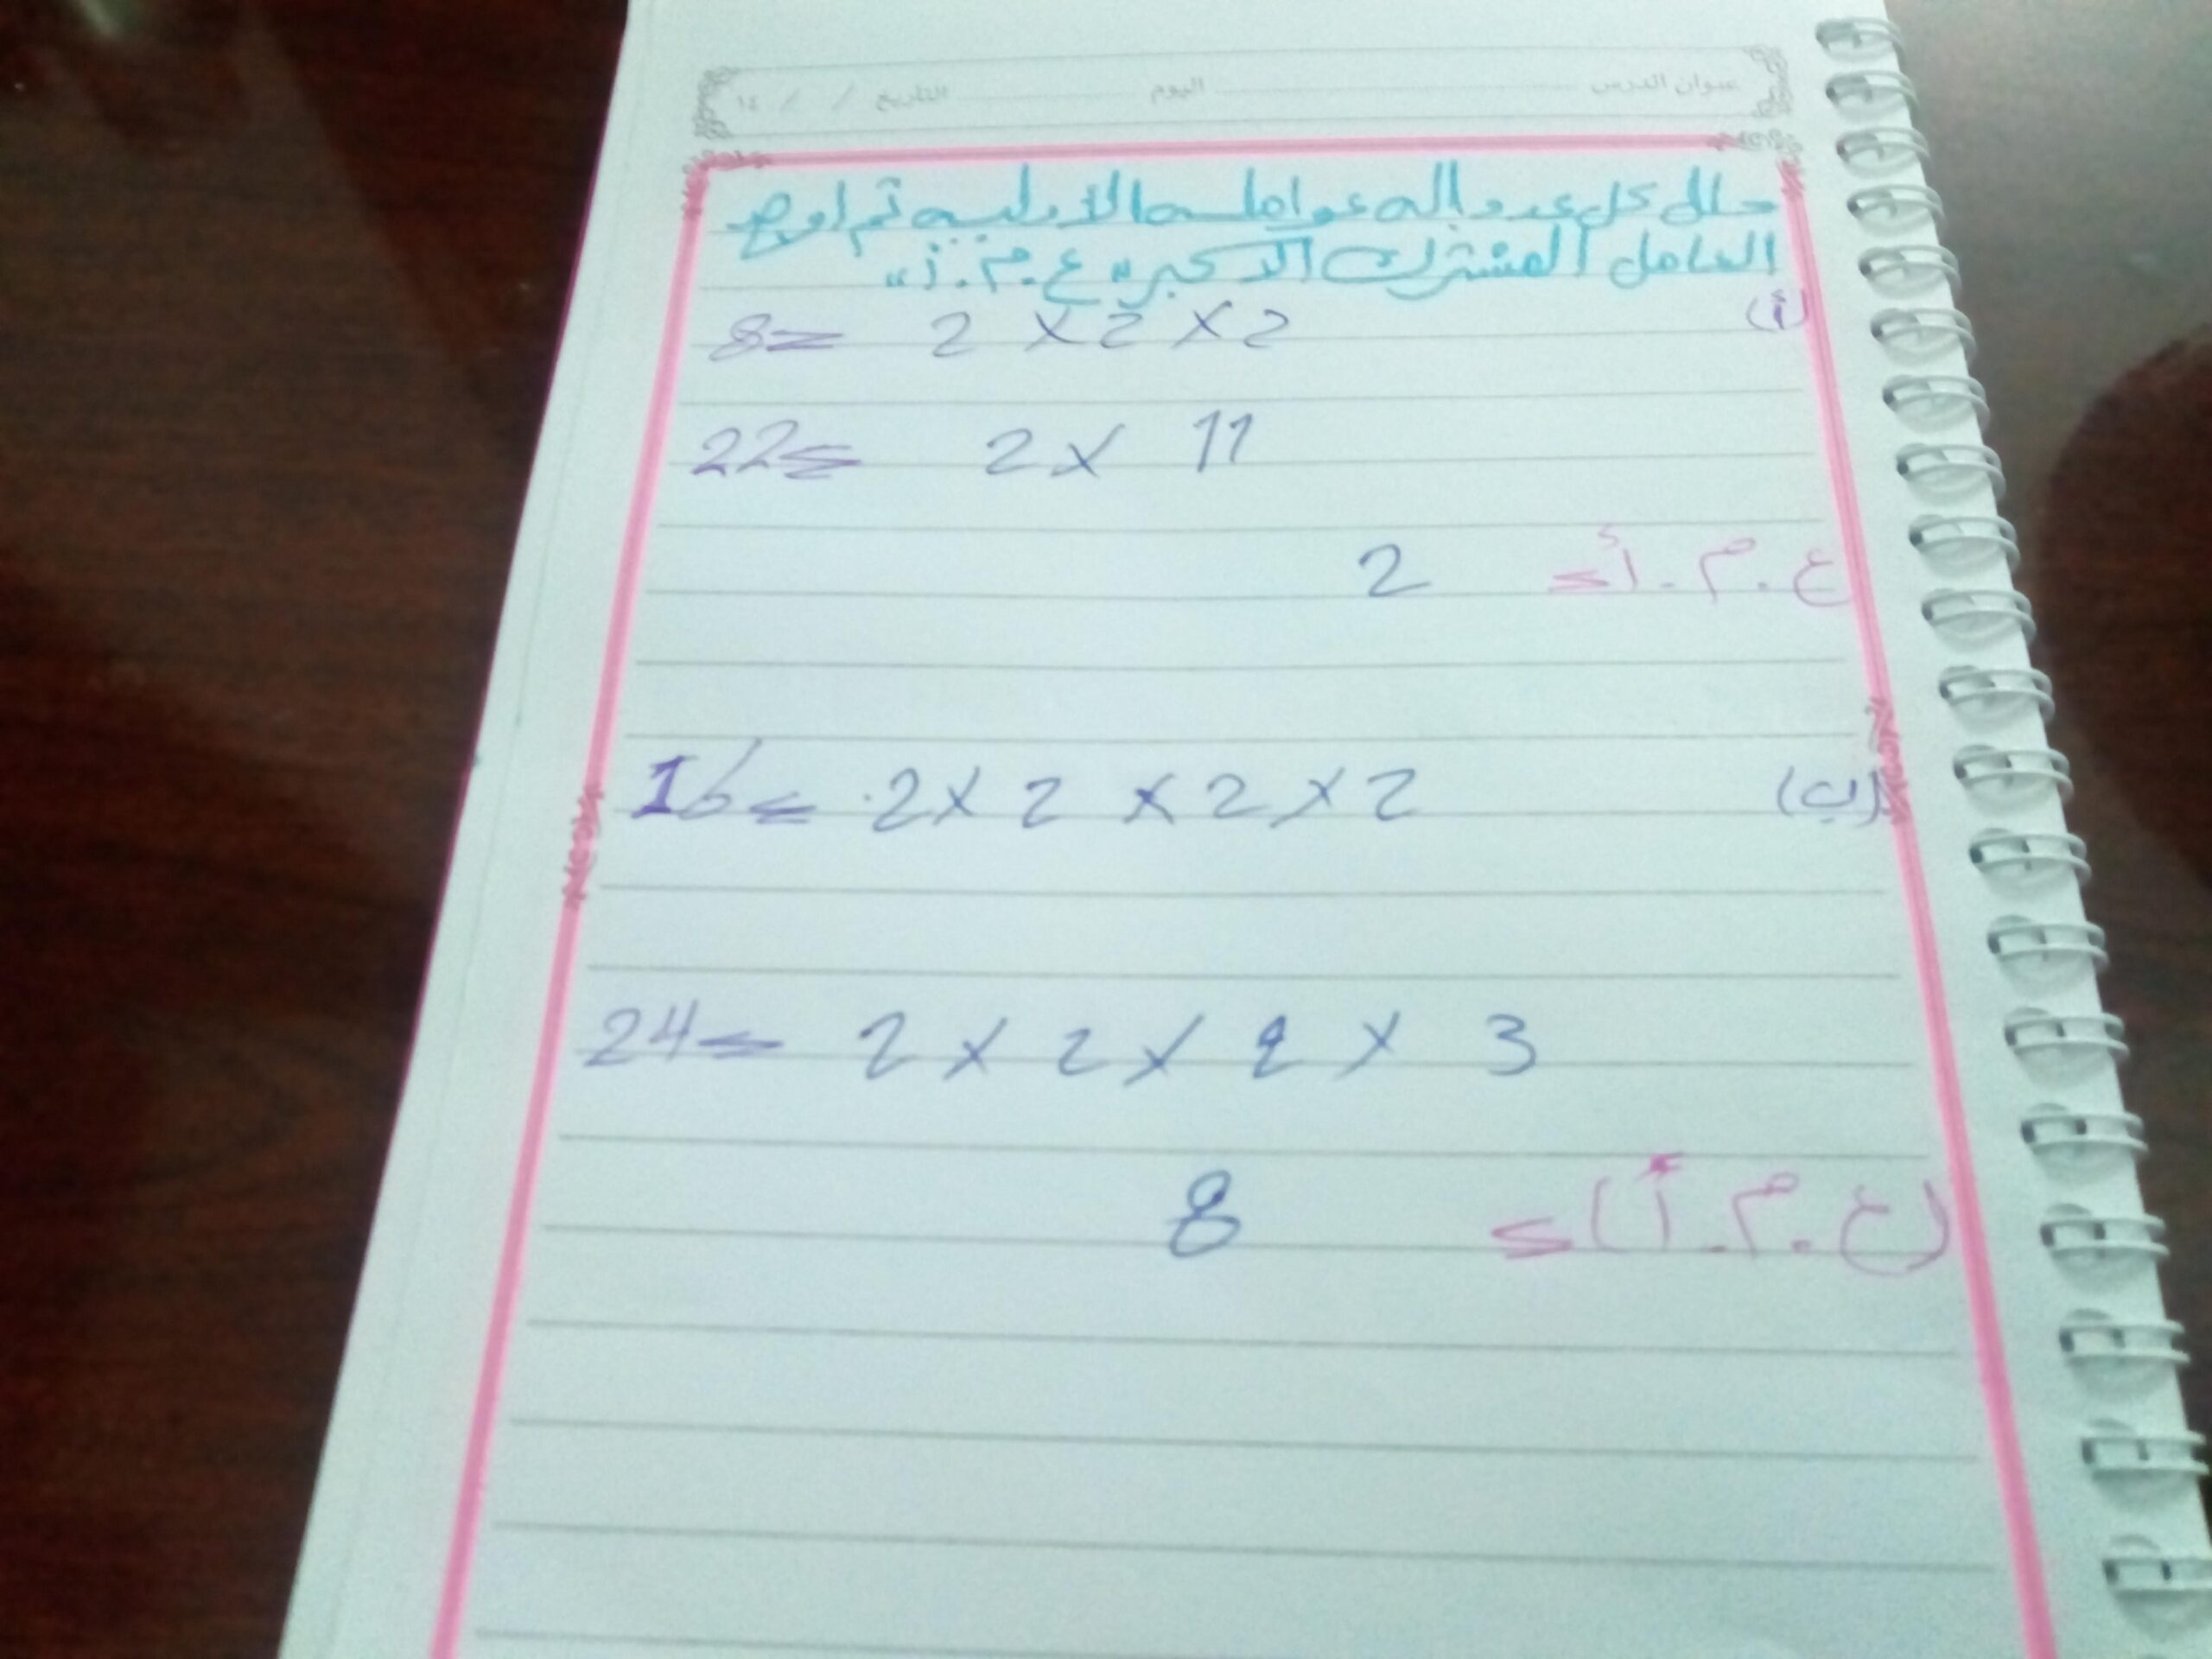 عنوان الدرس اليوم التاريخ / / ١٤
حلل كل عدد إلى عوامله الأولية ثم أوجد
العامل المشترك الأكبر "ع.م.أ"
(أ) 8= 2 × 2 × 2
22= 2 × 11
ع.م.أ= 2
(ب) 16= 2 × 2 × 2 × 2
24= 2 × 2 × 2 × 3
(ع.م.أ)= 8